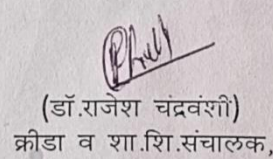 (डॉ.राजेश चंद्रवंशी)
क्रीडा व शा.शि.संचालक,